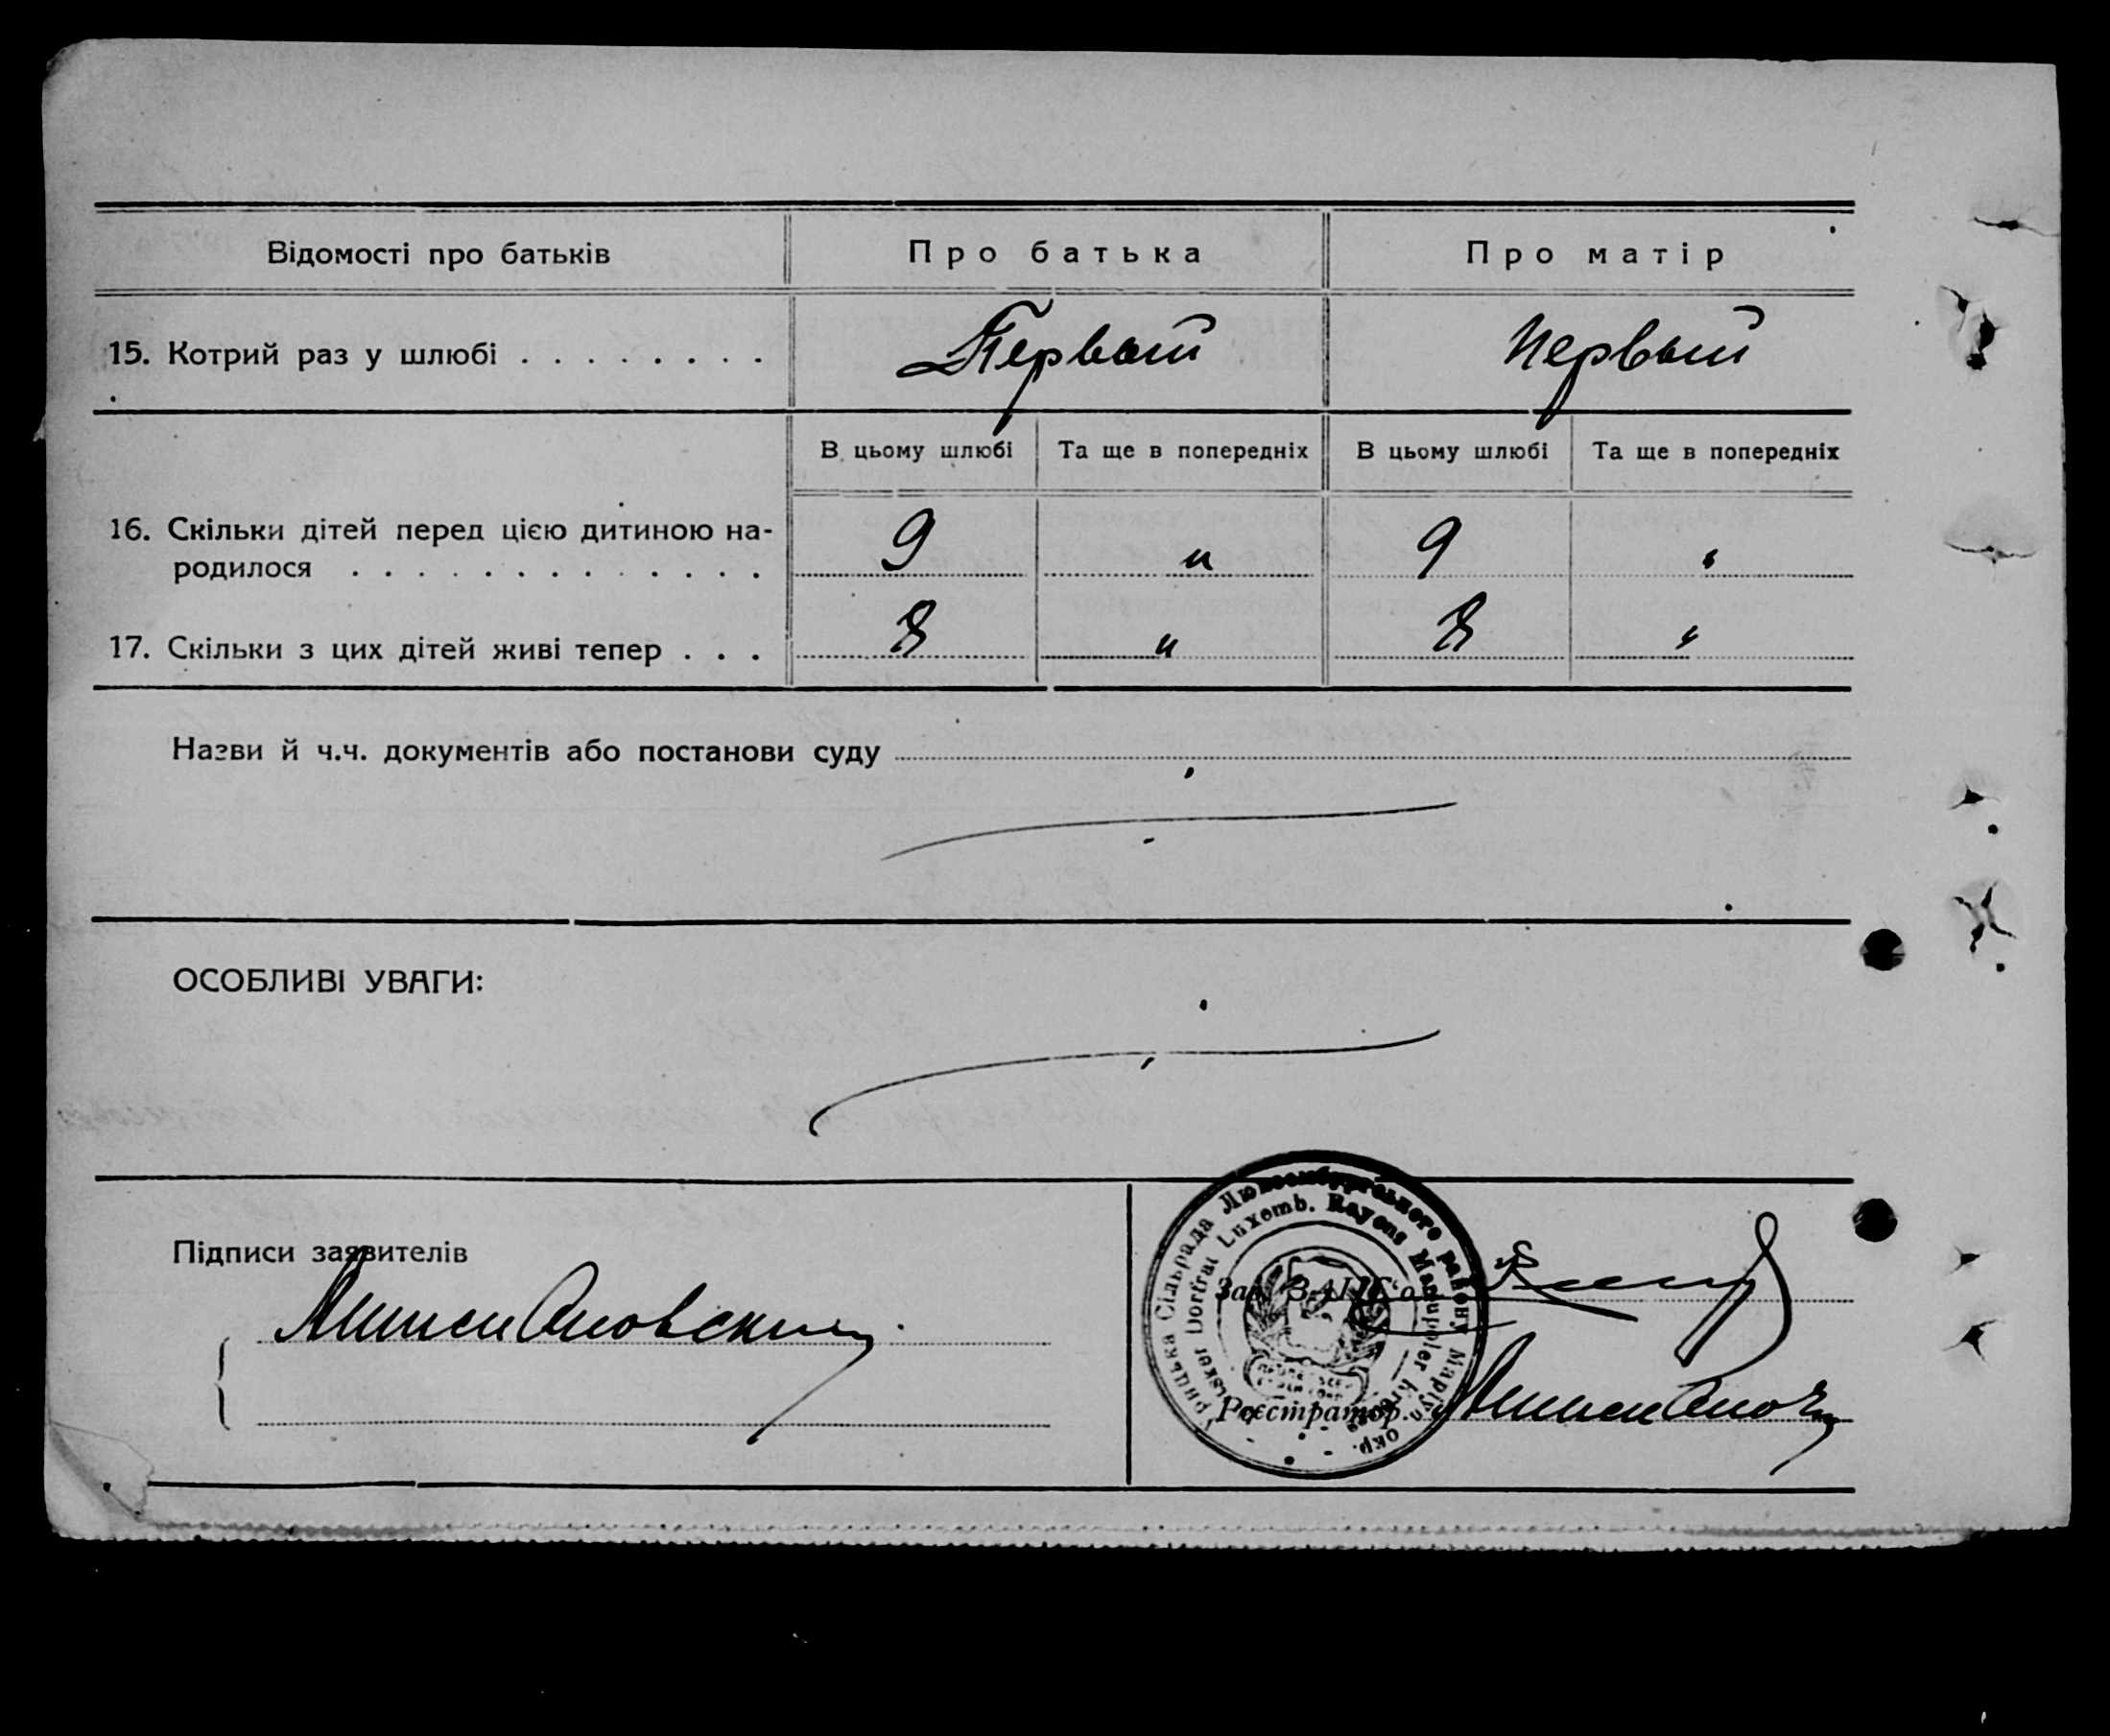 Відомості про батьків Про батька Про матір
15. Котрий раз у шлюбі . . . . . . . . Первый Первый
В цьому шлюбі Та ще в попередніх В цьому шлюбі Та ще в попередніх
16. Скільки дітей перед цією дитиною на-
родилося . . . . . . . . . . . . . 9 " 9 "
17. Скільки з цих дітей живі тепер . . . 8 " 8 "
Назви й ч.ч. документів або постанови суду
ОСОБЛИВІ УВАГИ:
Підписи заявителів
Зав. ЗАГС'ом
Реєстратор
Сільрада Люксембургського району Маріуп. окр.
Dorfrat Luxemb. Rayons Mariupoler Kreises